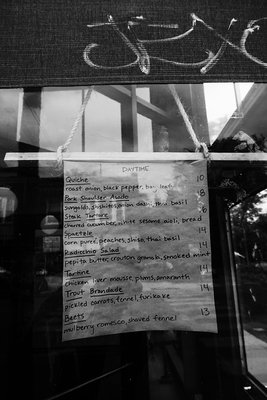 DAYTIME
Quiche 10
roast onion, black pepper, bay leaf
Pork Shoulder Asado 18
sungolds, shishitos, onion dashi, thai basil
Steak Tartare
charred cucumber, white sesame, aioli, bread
Spaetzle 14
corn puree, peaches, shiso, thai basil
Radicchio Salad 14
pepita butter, crouton granola, smoked mint
Tartine 14
chicken liver mousse, plums, amaranth
Trout Brandade 14
pickled carrots, fennel, furikake
Beets 13
mulberry romesco, shaved fennel